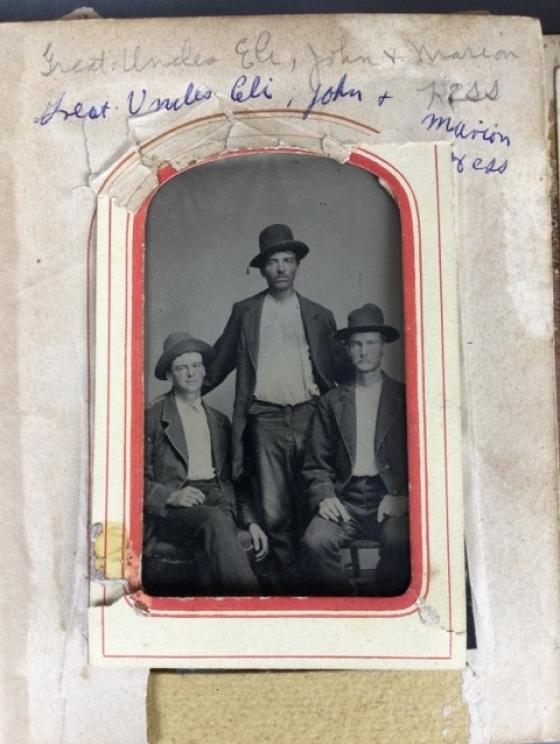 Great Uncles Eli, John & Marion
Hess
Great Uncles Eli, John +
Marion
Hess